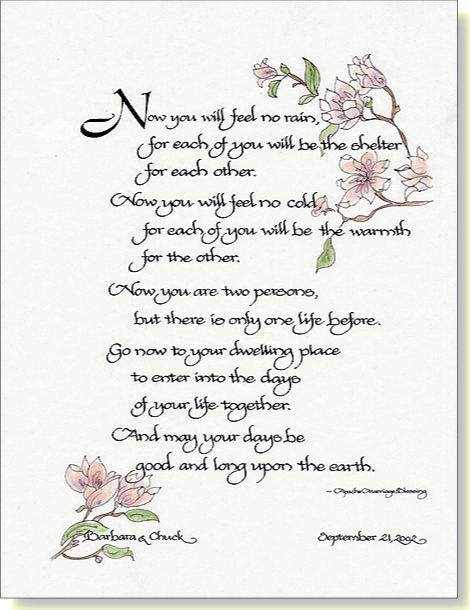 Now you will feel no rain,
for each of you will be the shelter
for each other.
Now you will feel no cold,
for each of you will be the warmth
for the other.
Now you are two persons,
but there is only one life before.
Go now to your dwelling place
to enter into the days
of your life together.
And may your days be
good and long upon the earth.
~ Apache Marriage Blessing
Barbara & Chuck
September 21, 2002